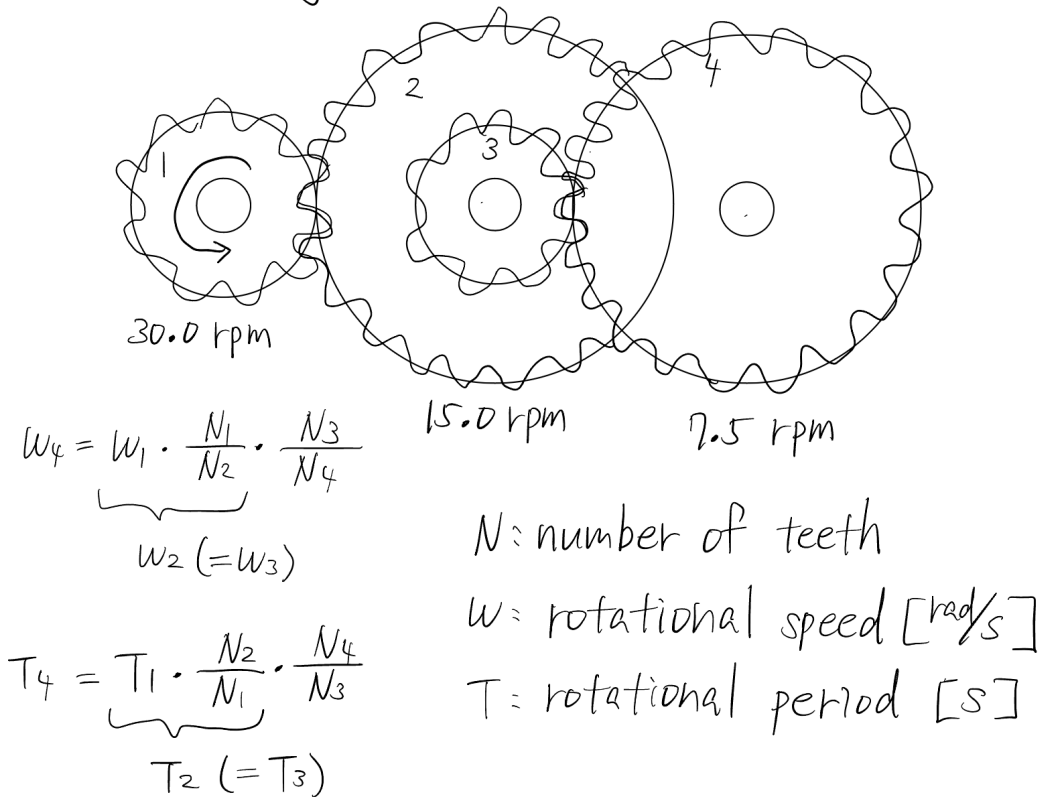 1
2
3
4
30.0 rpm
15.0 rpm
7.5 rpm
W4 = W1 · N1/N2 · N3/N4
W2 (=W3)
T4 = T1 · N2/N1 · N4/N3
T2 (=T3)
N: number of teeth
W: rotational speed [rad/s]
T: rotational period [s]